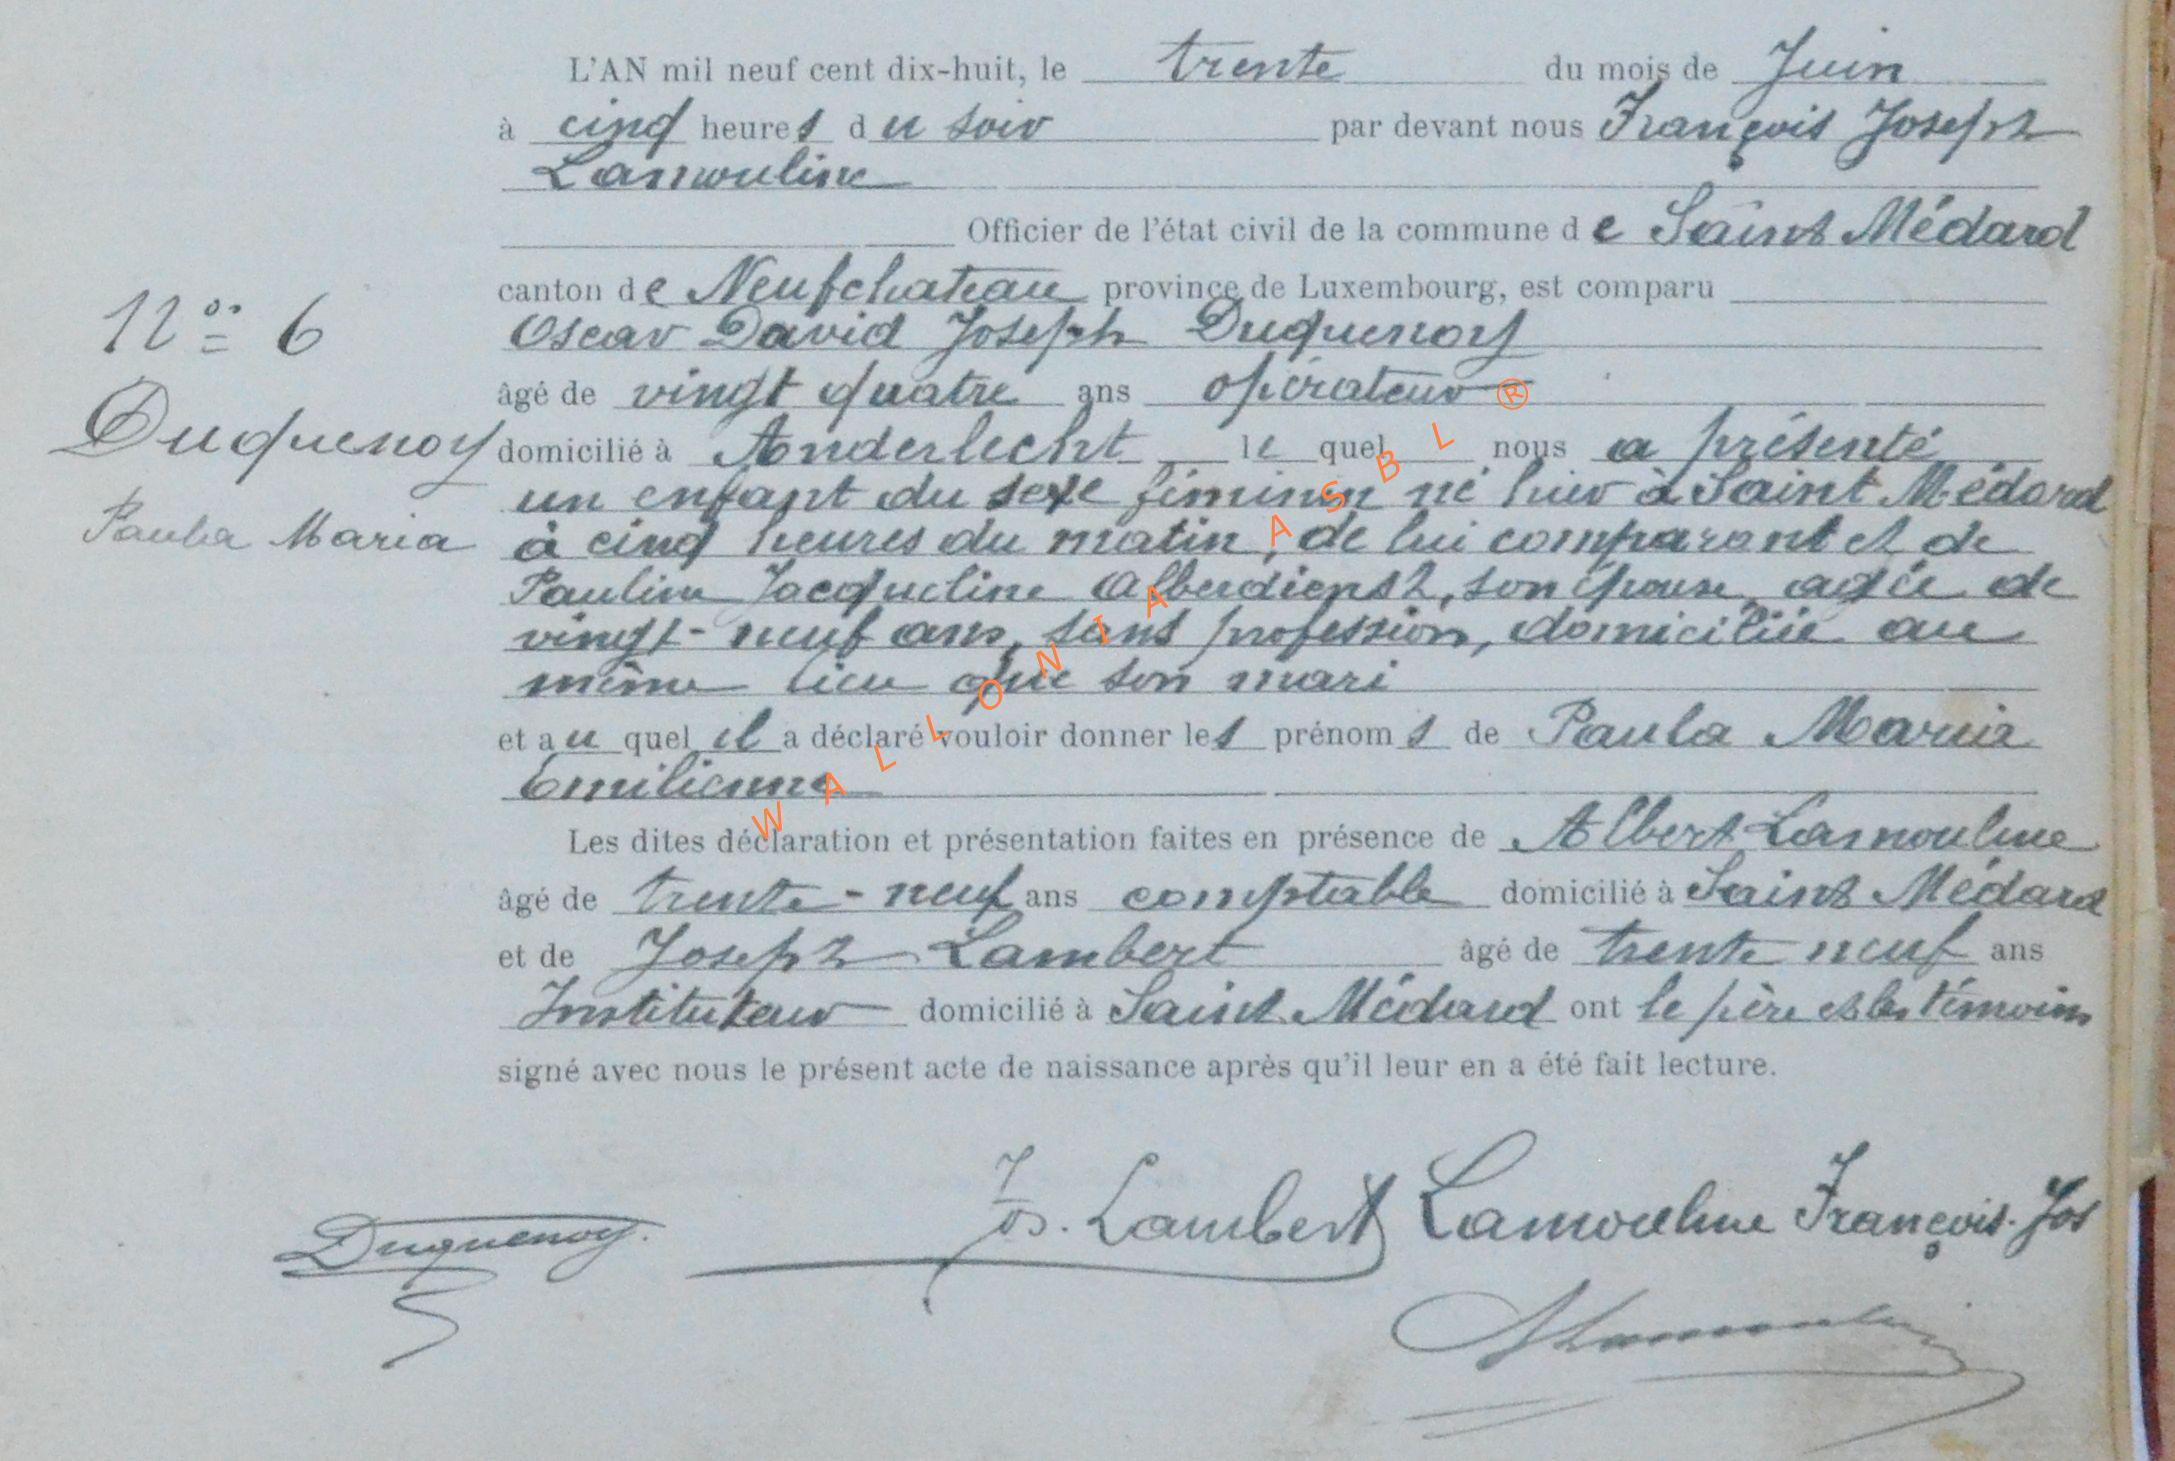 L'AN mil neuf cent dix-huit, le trente du mois de Juin
à cinq heures du soir par devant nous François Joseph
Lamouline
Officier de l'état civil de la commune de Saint Médard
canton de Neufchateau province de Luxembourg, est comparu
N° 6
Oscar David Joseph Duquenoy
âgé de vingt quatre ans opérateur
Duquenoy
domicilié à Anderlecht le quel nous a présenté
un enfant du sexe féminin né hier à Saint Médard
Paula Maria
à cinq heures du matin, de lui comparant et de
Pauline Jacqueline son épouse, agée de
vingt-neuf ans, sans profession, domiciliée au
même lieu que son mari
et au quel il a déclaré vouloir donner les prénoms de Paula Maria
Emilienne
Les dites déclaration et présentation faites en présence de Albert Lamouline
âgé de trente-neuf ans comptable domicilié à Saint Médard
et de Joseph Lambert âgé de trente neuf ans
Instituteur domicilié à Saint Médard ont le père et les témoins
signé avec nous le présent acte de naissance après qu'il leur en a été fait lecture.
Duquenoy.
Jos. Lambert
Lamouline François-Jos
ALamouline
WALLONIA ASBL ®